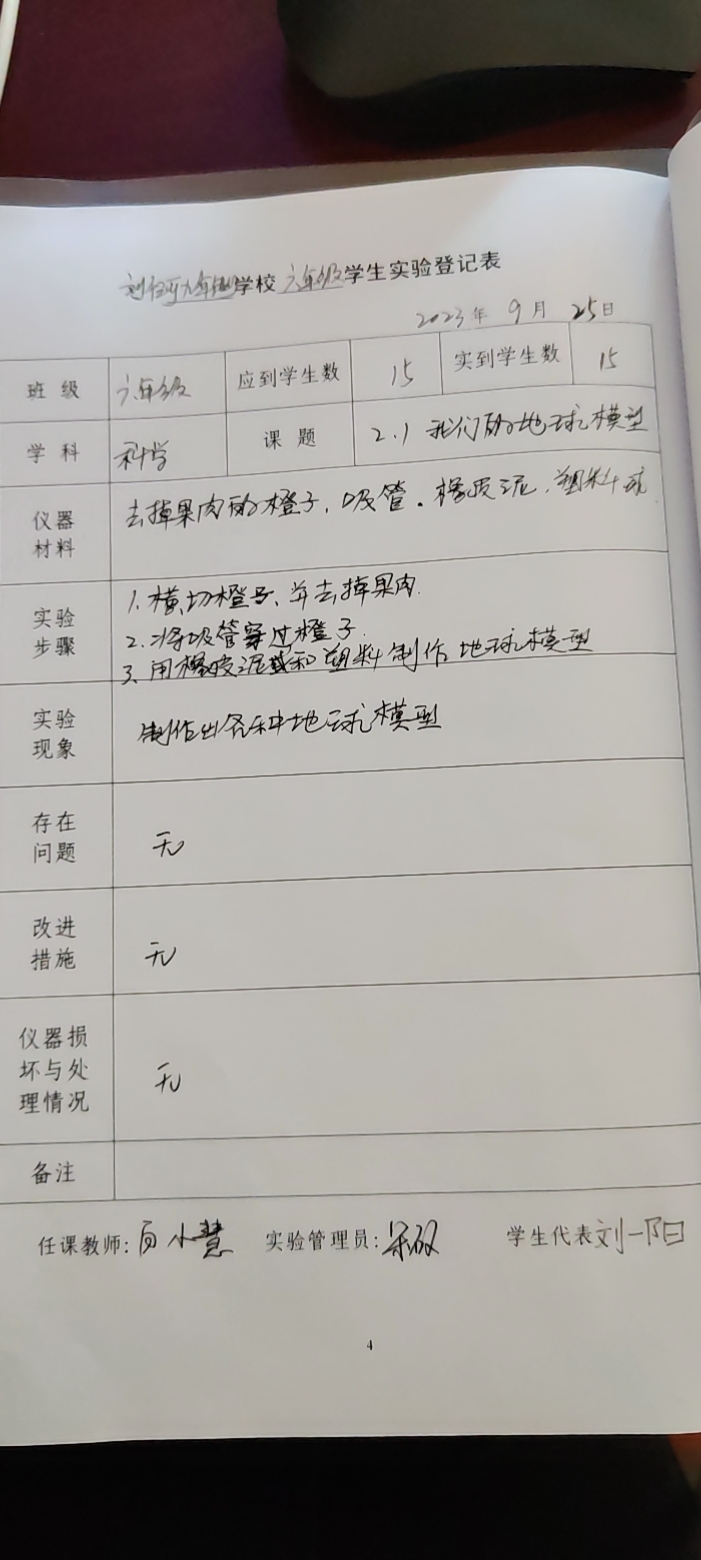 九年制学校 六年级学生实验登记表
2023年 9月 25日
班级 六年级 应到学生数 15 实到学生数 15
学科 科学 课题 2.1 我们的地球模型
仪器
材料
去掉果肉的橙子、吸管。橡皮泥、塑料球
实验
步骤
1. 横切橙子、并去掉果肉.
2. 将吸管穿过橙子.
3. 用橡皮泥和塑料制作地球模型
实验
现象
制作出各种地球模型
存在
问题
无
改进
措施
无
仪器损
坏与处
理情况
无
备注
任课教师: 小慧 实验管理员: 学生代表 刘一阳
4